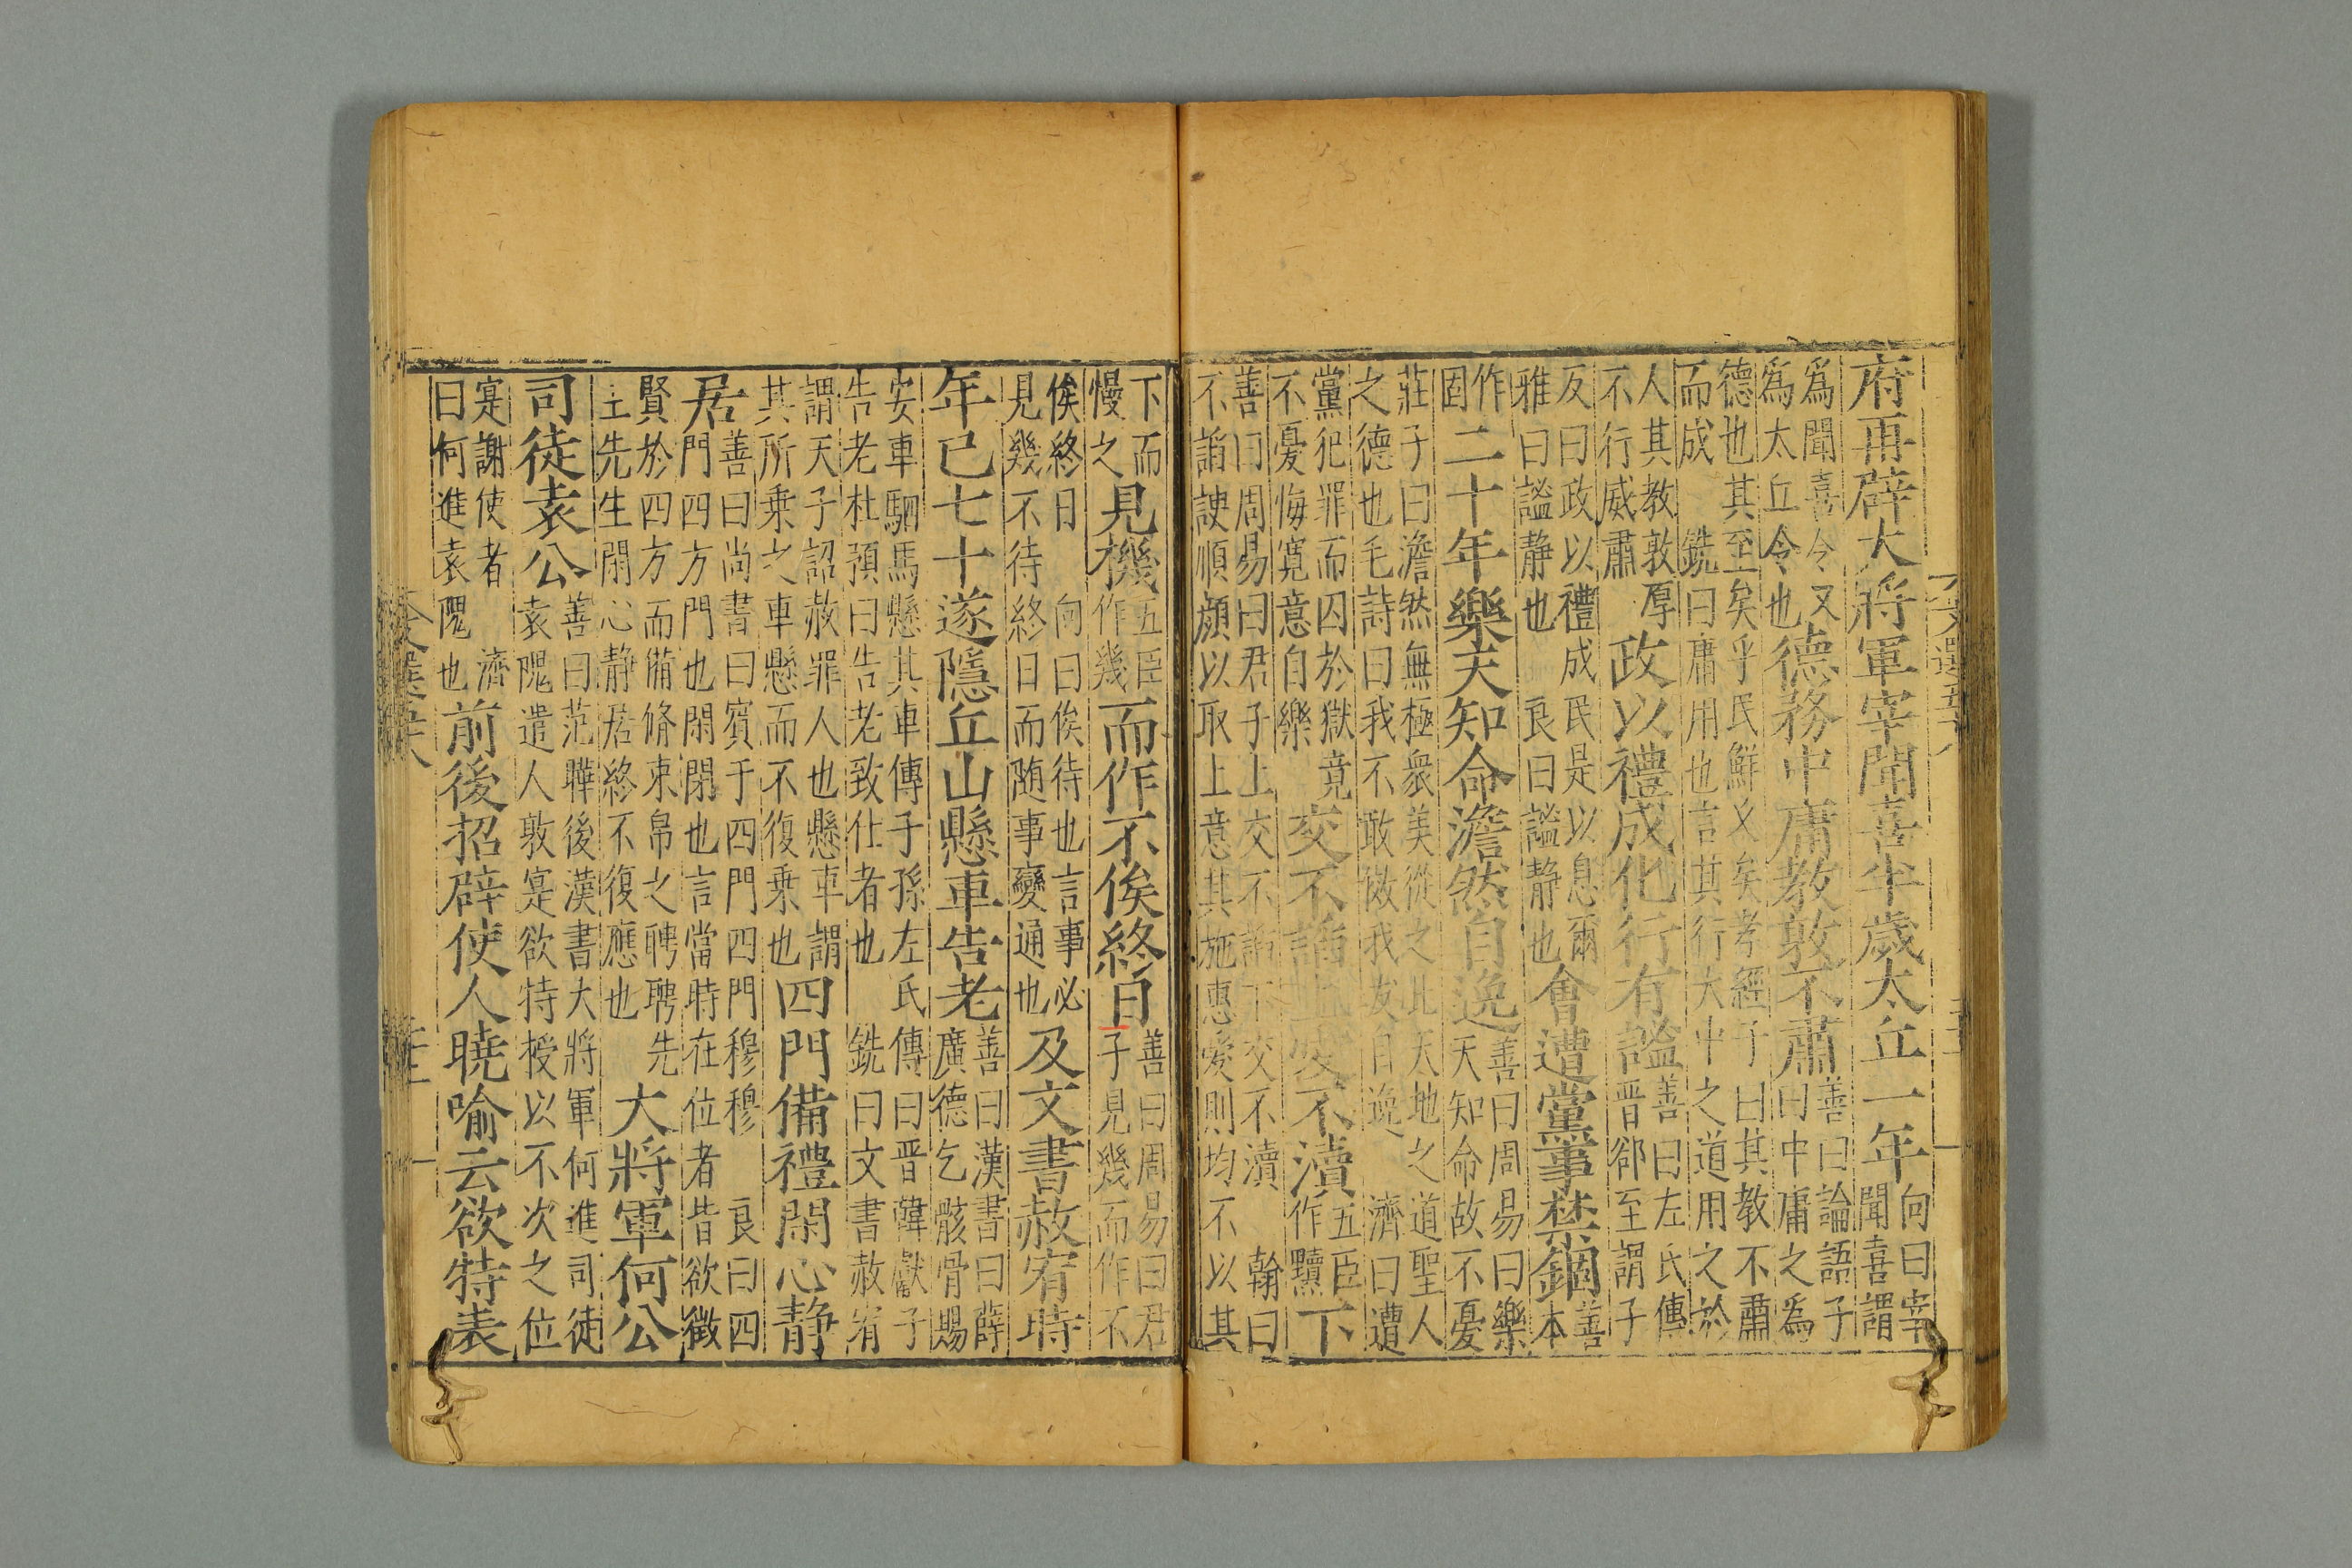 府再辟大將軍宰聞喜半歲太丘一年向曰宰聞喜謂
爲聞喜令又爲太丘令也德務中庸教敦不肅善曰論語子曰中庸之爲
德也其至矣乎民鮮久矣孝經子曰其教不肅而成 銑曰庸用也言其行大中之道用之於
人其教敦厚不行威肅政以禮成化行有謐善曰左氏傳晉郤至謂子
反曰政以禮成民是以息爾雅曰謐静也 良曰謐静也會遭黨事禁錮善本
作固二十年樂天知命澹然自逸善曰周易曰樂天知命故不憂
莊子曰澹然無極衆美從之此天地之道聖人之德也毛詩曰我不敢傚我友自逸 濟曰遭
黨犯罪而囚於獄竟不憂悔寬意自樂交不諂上愛不瀆五臣作黷下
善曰周易曰君子上交不諂下交不瀆 翰曰不諂諛順顔以取上意其施惠愛則均不以其
下而慢之見機五臣作幾而作不俟終日善曰周易曰君子見幾而作不
俟終日 向曰俟待也言事必見幾不待終日而随事變通也及文書赦宥時
年已七十遂隱丘山懸車告老善曰漢書曰薛廣德乞骸骨賜
安車駟馬懸其車傳子孫左氏傳曰晉韓獻子告老杜預曰告老致仕者也 銑曰文書赦宥
謂天子詔赦罪人也懸車謂其所乗之車懸而不復乗也四門備禮閑心静
居善曰尚書曰賓于四門四門穆穆 良曰四門四方門也閑閉也言當時在位者皆欲徵
賢於四方而備脩束帛之聘聘先生先生閑心静居終不復應也大將軍何公
司徒袁公善曰范曄後漢書大將軍何進司徒袁隗遣人敦寔欲特授以不次之位
寔謝使者 濟曰何進袁隗也前後招辟使人曉喻云欲特表